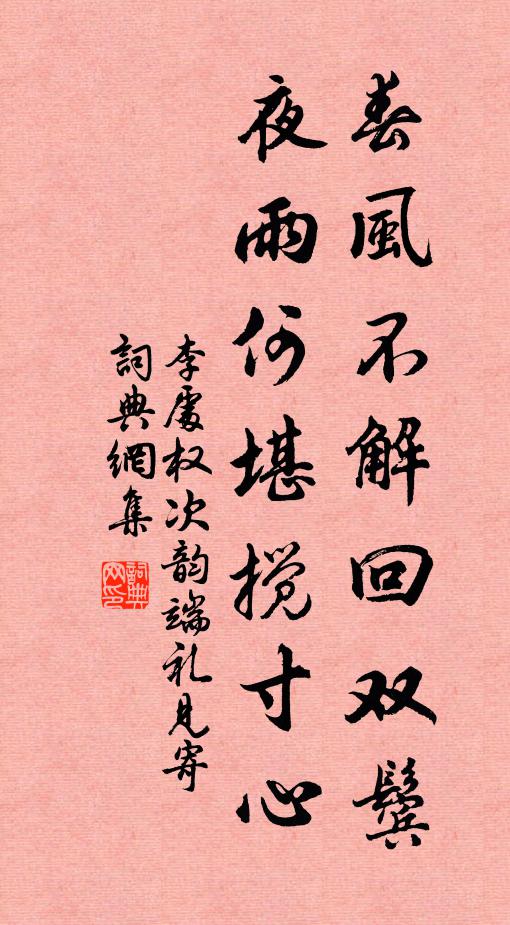 春風不解回双鬓
夜雨何堪搅寸心
李處权次韵端礼見寄
詞典網集
詞典网印